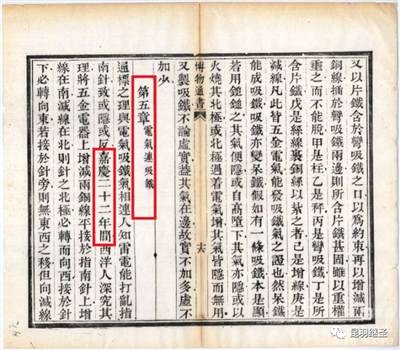 又以片鐵含於彎吸鐵之兩邊以爲約束再以增減兩
銅線插於彎吸鐵兩邊則所含片鐵甚固雖以重權
垂之而不能脫甲是柱乙是秤丙是彎吸鐵丁是所
含片鐵戊是絲裹銅線以紮之者己是增線庚是
減線凡此皆五金電氣能發吸鐵氣之證也然呆鐵
能成吸鐵吸鐵亦變呆鐵假如有一條吸鐵本是顯
若用鎚鎚之其氣便隱或自高墮下其氣亦隱或以
火燒其北極或北極過着電氣增其氣皆隱而無用
博物通書
十六
又製吸鐵不論虛實蓋其氣在邊故實不加多虛不
加少
第五章電氣連吸鐵
過標之理與電氣吸鐵氣相連人知雷電能打亂指
南針致或隱或反嘉慶二十二年間西洋人深究其
理將五金電器上增減兩銅線平接於指南針上增
線在南減線在北則針之北極必轉而向西接於針
下必轉向東若接於針旁則無東西之移但向減線
昆羽继圣